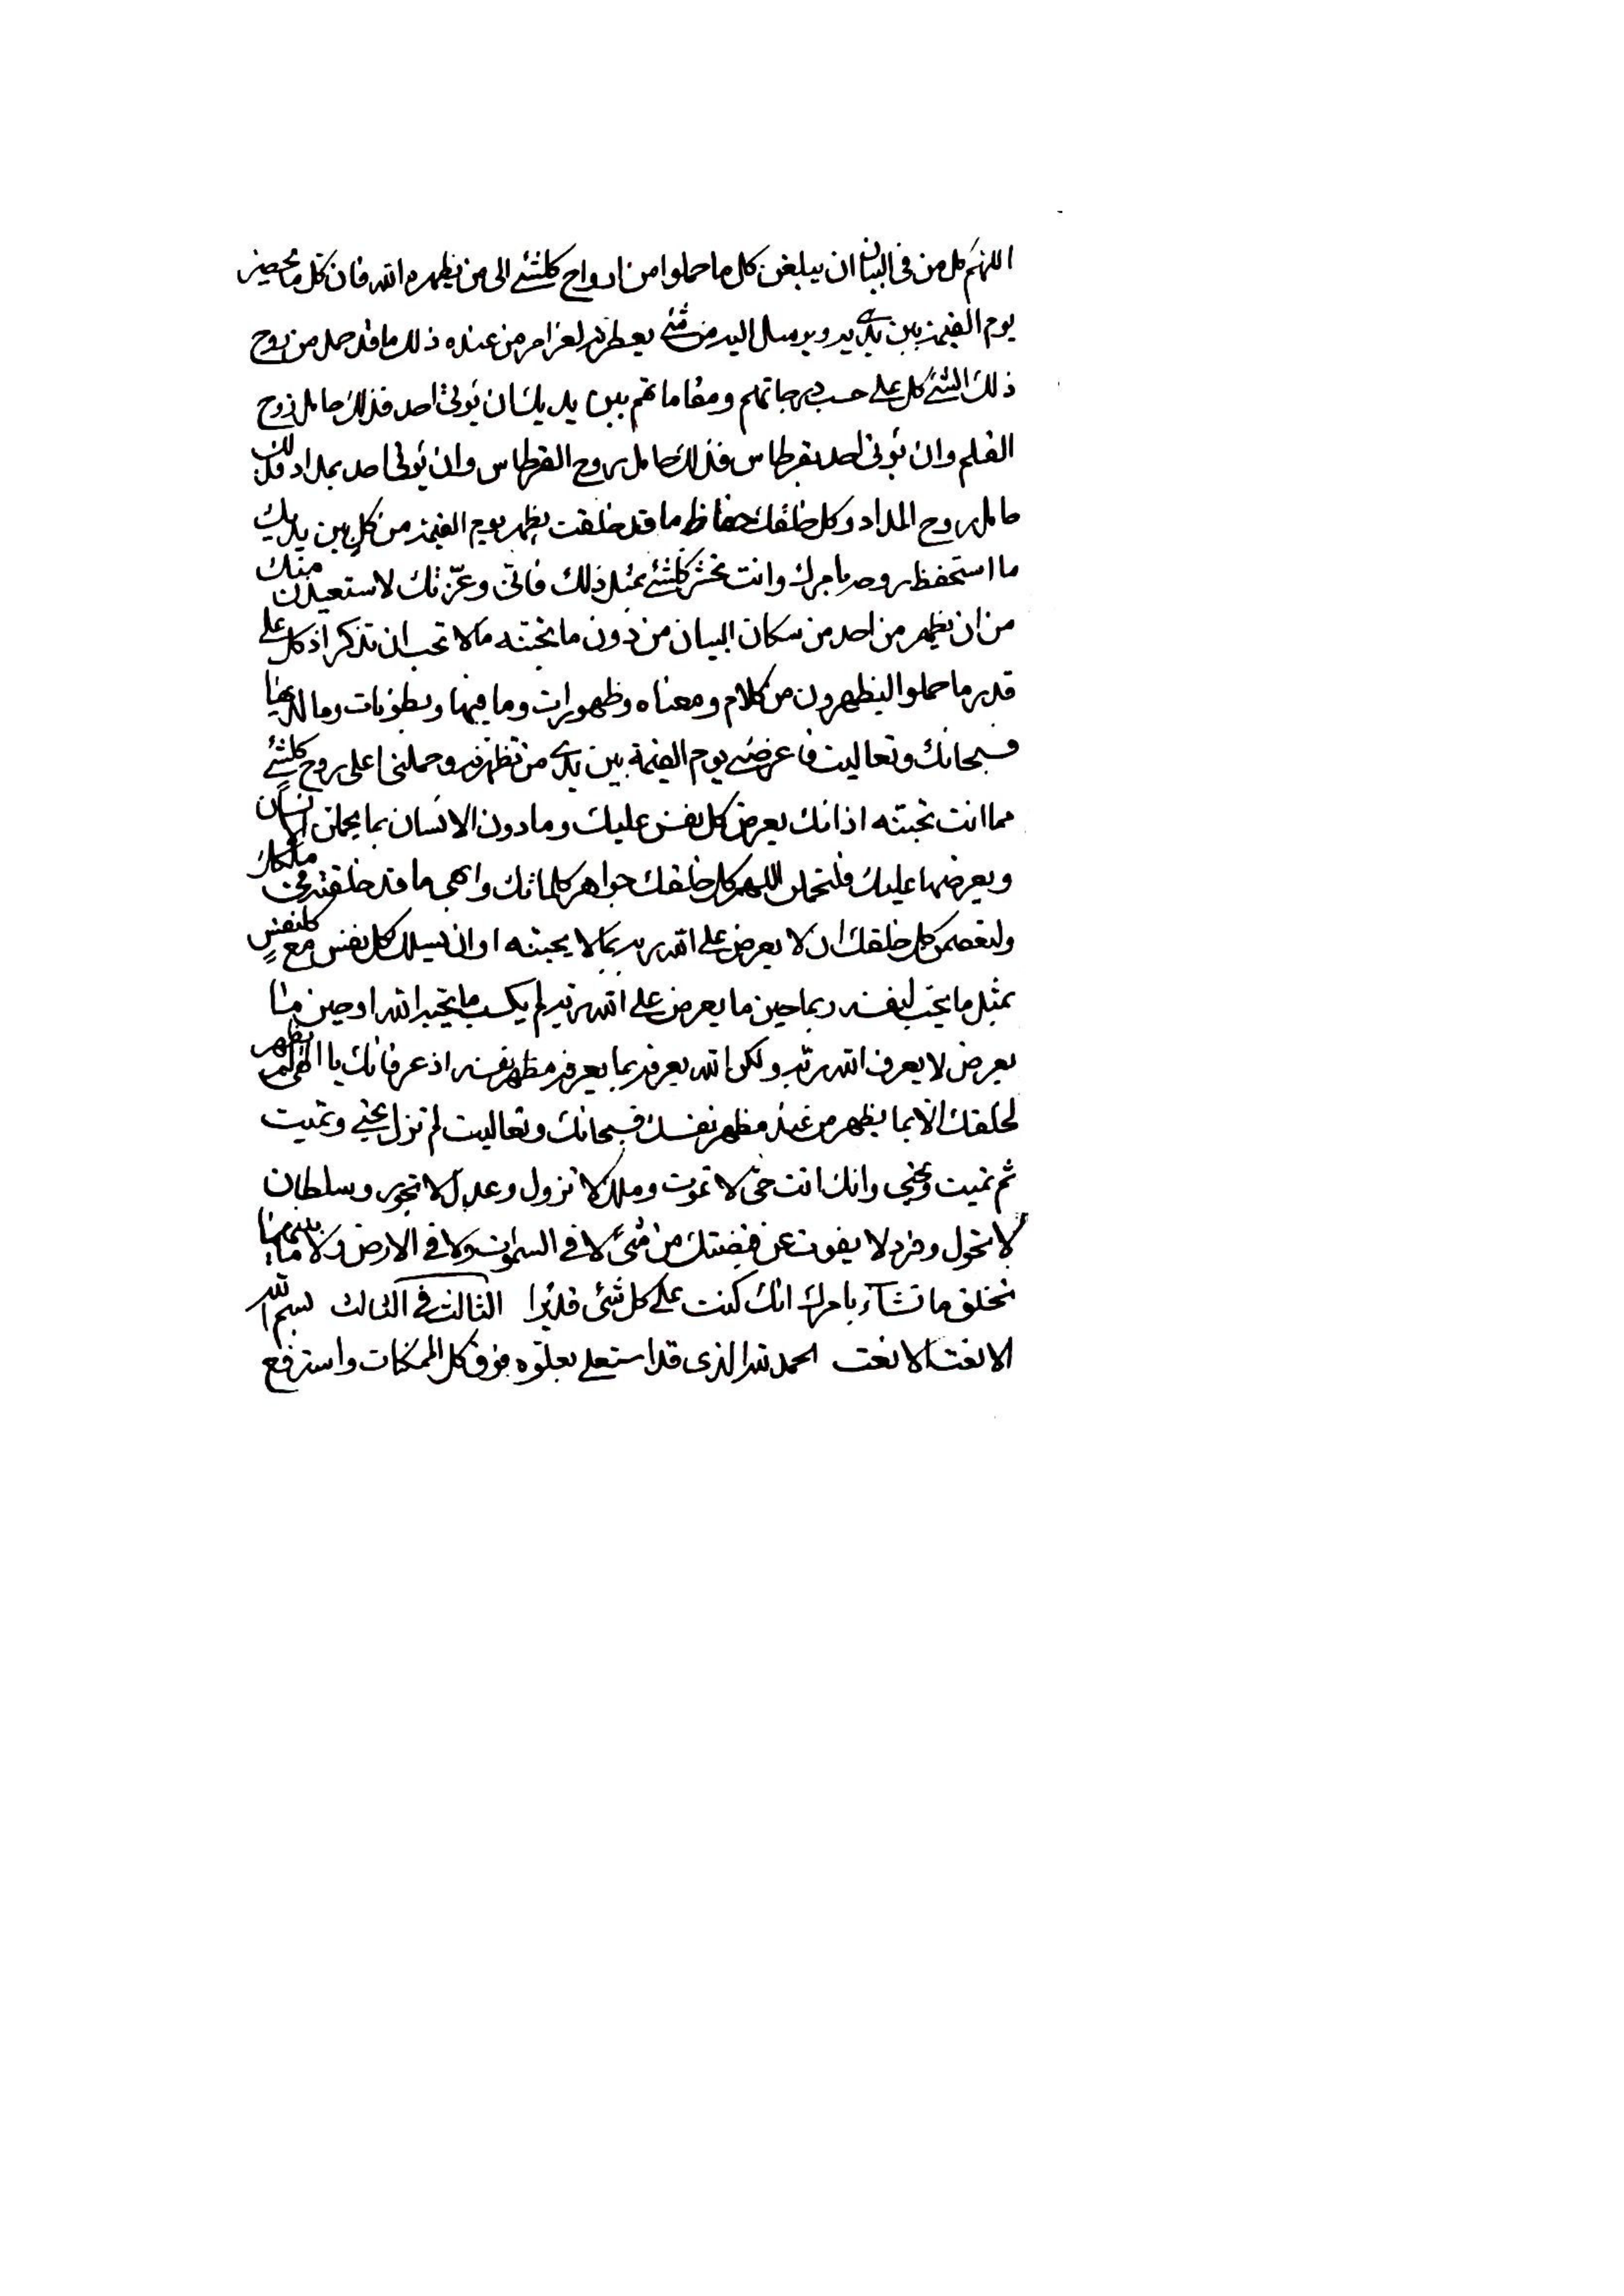 اللهم كل من فى البيان ان يبلغن كل ما حملوا من ارواح كلشئ الى من يظهره الله فان كل ما يحضر
يوم القيمة بين يديه ويرسل اليه من شئ لعز امر من عنده ذلك ما قد حمل من روح
ذلك الشئ كل على حسب درجاتهم ومقاماتهم بين يديك ان يؤتى احد فذلك حامل روح
القلم وان يؤتى احد بقرطاس فذلك حامل روح القرطاس وان يؤتى احد بمداد فذلك
حامل روح المداد وكل خلقك حفاظ ما قد خلقت يظهر يوم القيمة من كل بين يديك
ما استحفظ روحه بامرك وانت تحشر كلشئ بمثل ذلك فانى وعزتك لاستعيذن منك
من ان يظهر من احد من سكان البيان من دون ما تحبنه ما لا تحب ان تذكر اذ كل على
قدر ما حملوا ليظهرون من كلام ومعناه وظهورات وما فيها وبطونات وما لديها
فسبحانك وتعاليت فاعرضنى يوم القيمة بين يدى من تظهرنه وحملنى اعلى روح كلشئ
مما انت تحبنه اذ انك يعرض كل نفس عليك وما دون الانسان بما يحملن الانسان
ويعرضها عليك فلتحملن اللهم كل خلقك جواهر كلماتك وابهى ما قد خلقته فى ملكك
ولتعصمن كل خلقك ان لا يعرض على الله ربه بما لا يحبنه او ان يسلك كل نفس مع كلنفس
بمثل ما يحب لنفسه ربما حين ما يعرض على الله ربه لم يكسب ما يحبه الله او حين ما
يعرض لا يعرف الله ربه ولكن الله يعرفه بما يعرفه مظهر نفسه اذ عرفانك يا الهى لم يظهر
لخلقك الا بما يظهر من عند مظهر نفسك فسبحانك وتعاليت لم تزل تحيى وتميت
ثم تميت وتحيى وانك انت حى لا تموت وملك لا تزول وعدل لا تجور وسلطان
لا تحول وفرد لا يفوت عن قبضتك من شئ لا فى السموات ولا فى الارض ولا ما بينهما
تخلق ما تشآء بامرك انك كنت على كل شئ قديرا الثالث فى الثالث بسم الله
الانعت الانعت الحمد لله الذى قد استعلى بعلوه فوق كل الممكنات واسترفع